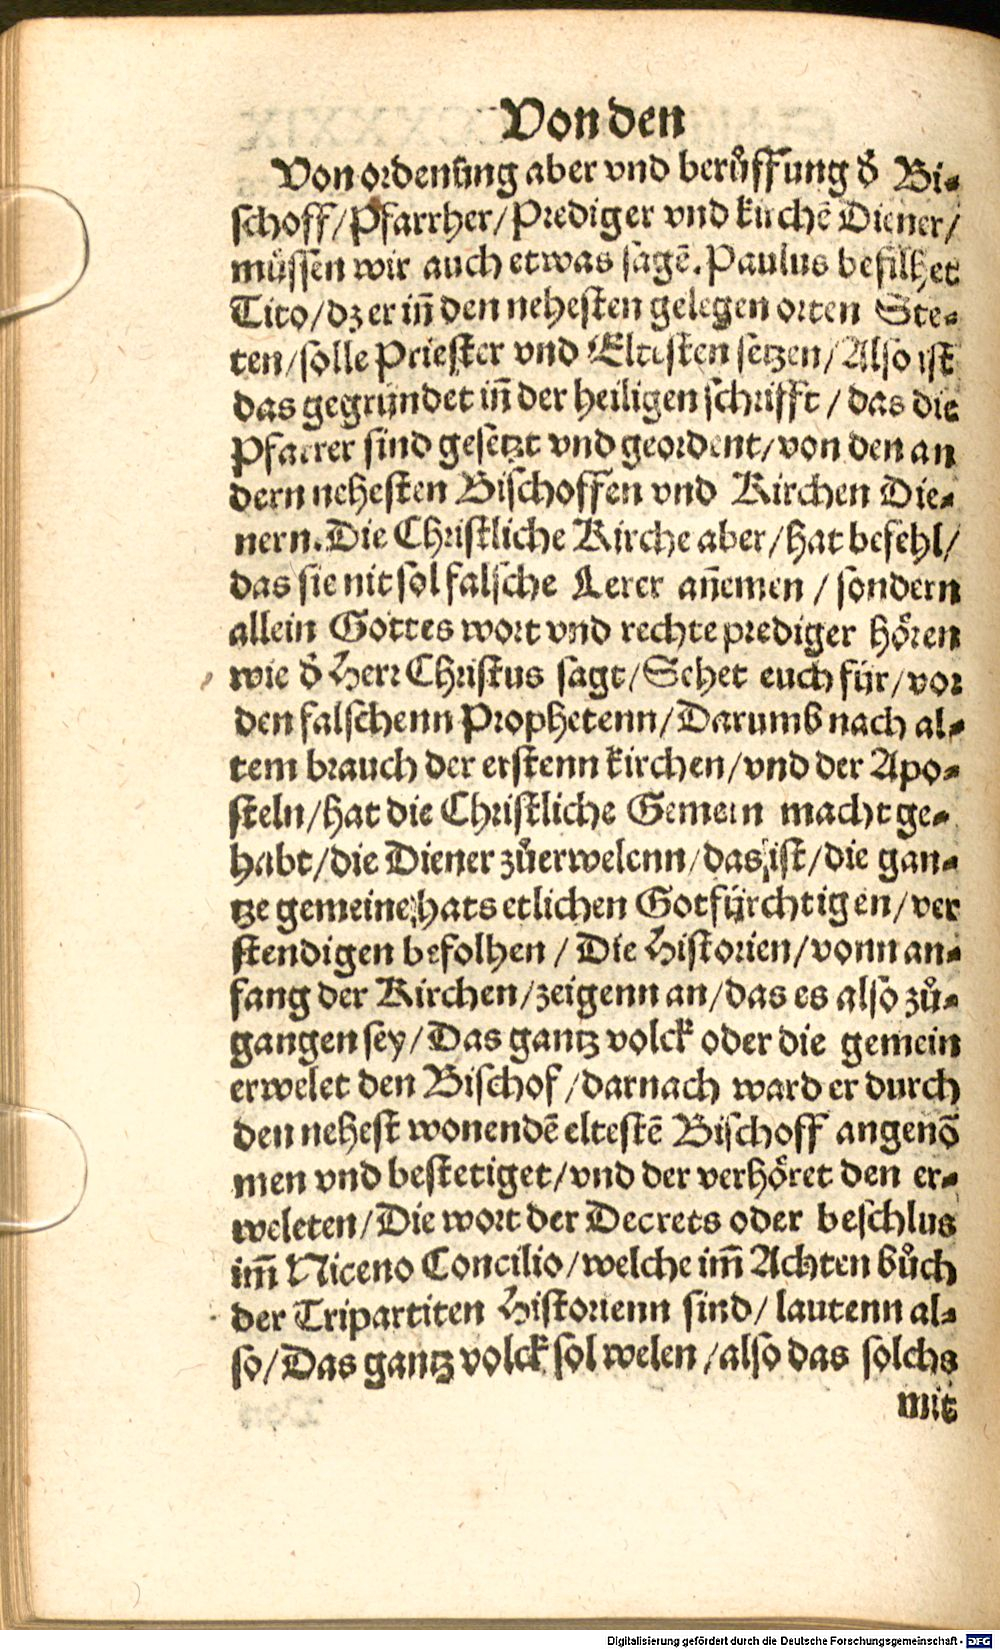 Von den
Von ordenung aber vnd berůffung d̕ Bi-
schoff/Pfarrher/Prediger vnd kirchē Diener/
müssen wir auch etwas sagē. Paulus befilhet
Tito/dz er iñ den nehesten gelegen orten Ste-
ten/solle Priester vnd Eltesten setzen/Also ist
das gegründet iñ der heiligen schrifft/das die
Pfarrer sind gesetzt vnd geordent/von den an
dern nehesten Bischoffen vnd Kirchen Die-
nern. Die Christliche Kirche aber/hat befehl/
das sie nit sol falsche Lerer añemen/sondern
allein Gottes wort vnd rechte prediger hören
wie d̕ Herr Christus sagt/Sehet euch für/vor
den falschenn Prophetenn/Darumb nach al-
tem brauch der erstenn kirchen/vnd der Apo-
steln/hat die Christliche Gemein macht ge-
habt/die Diener zůerwelenn/das ist/die gan-
tze gemeine hats etlichen Gotfürchtigen/ver
stendigen befolhen/Die Historien/vonn an-
fang der Kirchen/zeigenn an/das es also zů-
gangen sey/Das gantz volck oder die gemein
erwelet den Bischof/darnach ward er durch
den nehest wonendē eltestē Bischoff angenō
men vnd bestetiget/vnd der verhöret den er-
weleten/Die wort der Decrets oder beschlus
im̄ Niceno Concilio/welche im̄ Achten bůch
der Tripartiten Historienn sind/lautenn al-
so/Das gantz volck sol welen/also das solchs
mit
Digitalisierung gefördert durch die Deutsche Forschungsgemeinschaft - DFG